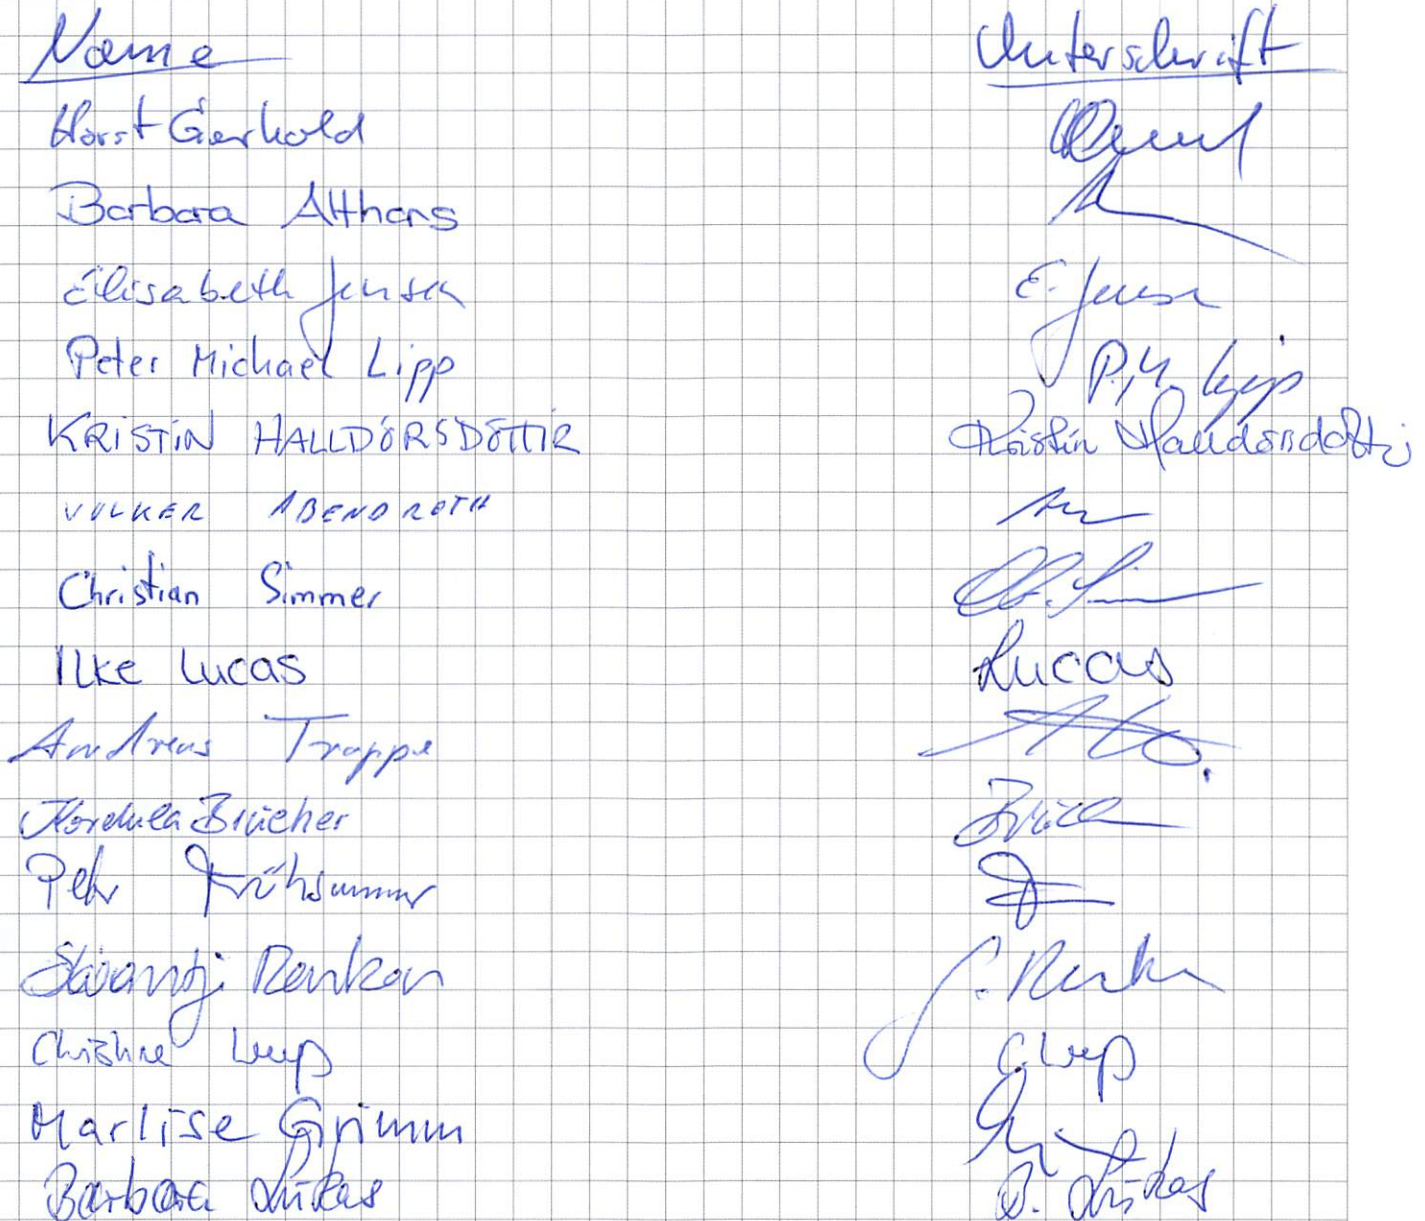 Name Unterschrift
Horst Gerhold
Barbara Althans
Elisabeth Jensen E. Jensen
Peter Michael Lipp P.M. Lipp
KRISTÍN HALLDÓRSDÓTTIR Kristín Halldórsdóttir
VOLKER ABENDROTH
Christian Simmer Ch. Simmer
Ilke Lucas Lucas
Andreas Trappe
Kordula Brücher
Peter Frühsammer
Swantje Renken S. Renken
Christine
Marlise Grimm
Barbara Lukas B. Lukas